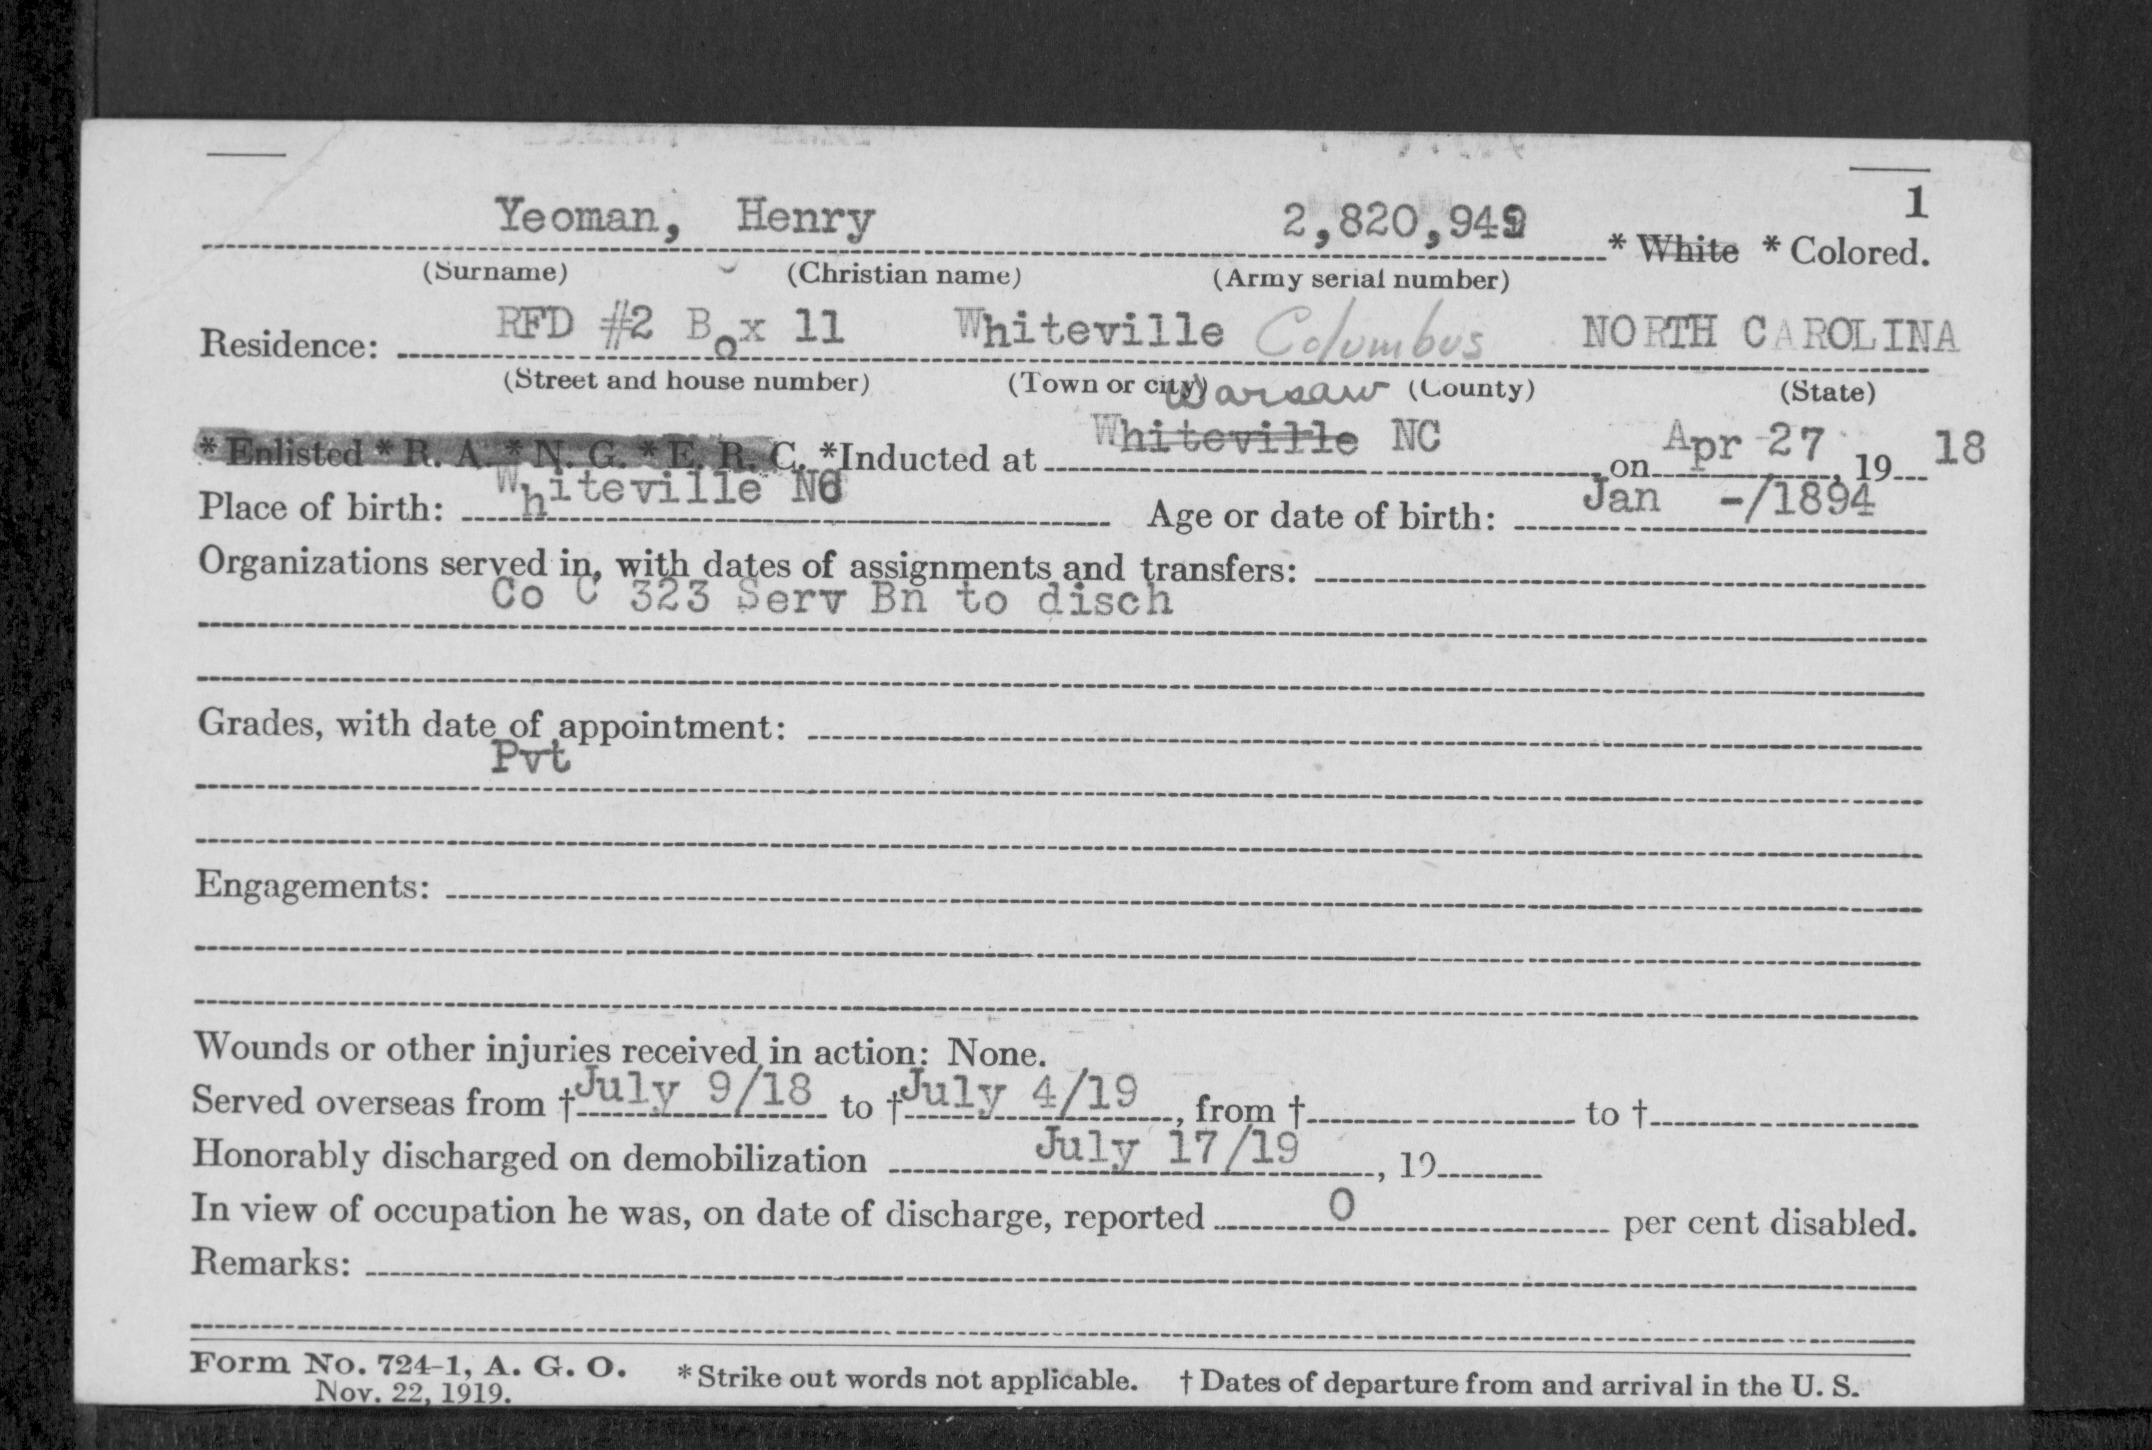 1
Yeoman, Henry 2,820,949 * White * Colored.
(Surname) (Christian name) (Army serial number)
Residence: RFD #2 Box 11 Whiteville Columbus NORTH CAROLINA
(Street and house number) (Town or city) (County) (State)
Warsaw
* Enlisted * R. A. * N. G. * E. R. C. *Inducted at Whiteville NC on Apr 27, 19 18
Place of birth: Whiteville NC Age or date of birth: Jan -/1894
Organizations served in, with dates of assignments and transfers:
Co C 323 Serv Bn to disch
Grades, with date of appointment:
Pvt
Engagements:
Wounds or other injuries received in action: None.
Served overseas from † July 9/18 to † July 4/19, from † to †
Honorably discharged on demobilization July 17/19, 19
In view of occupation he was, on date of discharge, reported 0 per cent disabled.
Remarks:
Form No. 724-1, A. G. O. * Strike out words not applicable. † Dates of departure from and arrival in the U. S.
Nov. 22, 1919.